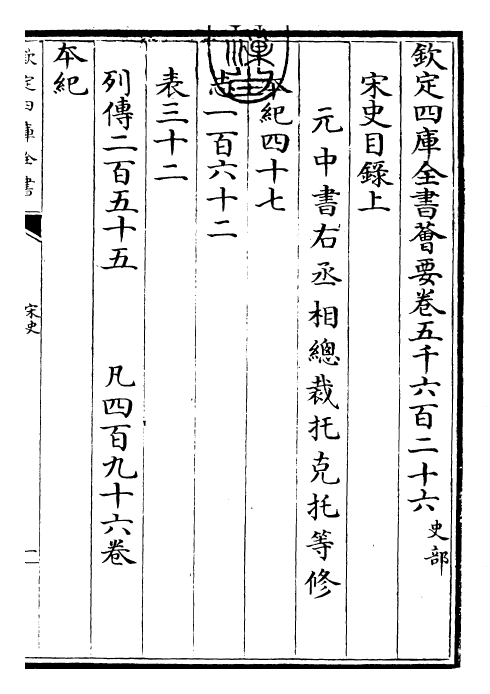 欽定四庫全書薈要卷五千六百二十六 史部
宋史目錄上
元中書右丞相總裁托克托等修
本紀四十七
志一百六十二
表三十二
列傳二百五十五 凡四百九十六卷
本紀
欽定四庫全書
宋史
一